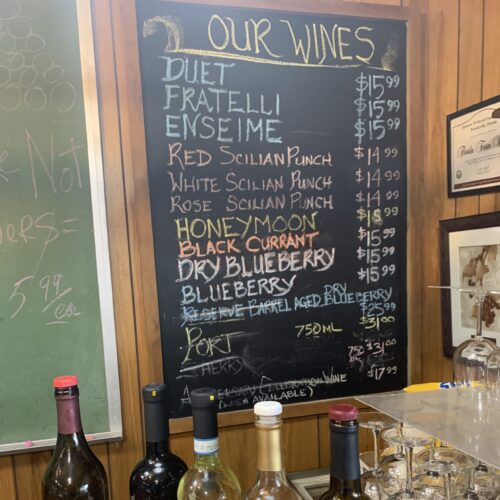 OUR WINES
DUET $15.99
FRATELLI $15.99
ENSEIME $15.99
RED SCILIAN PUNCH $14.99
WHITE SCILIAN PUNCH $14.99
ROSE SCILIAN PUNCH $14.99
HONEYMOON $15.99
BLACK CURRANT $15.99
DRY BLUEBERRY $15.99
BLUEBERRY $15.99
RESERVE BARREL AGED DRY BLUEBERRY $25.99
PORT 750ML $31.00
SHERRY 750 $31.00
CELEBRATION WINE $17.99
(WHEN AVAILABLE)
Not
5.99
ea